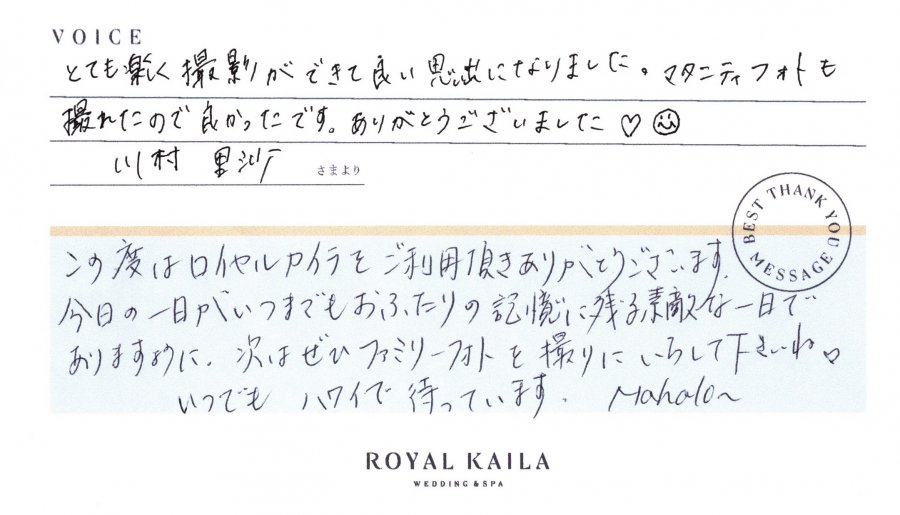 VOICE
とても楽しく撮影ができて良い思出になりました。マタニティフォトも
撮れたので良かったです。ありがとうございました♡☺
川村 里沙 さまより
BEST THANK YOU MESSAGE
この度はロイヤルカイラをご利用頂きありがとうございます。
今日の一日がいつまでもおふたりの記憶に残る素敵な一日で
ありますように、次はぜひファミリーフォトを撮りにいらして下さいね♡
いつでも ハワイで 待っています. Mahalo~
ROYAL KAILA
WEDDING & SPA